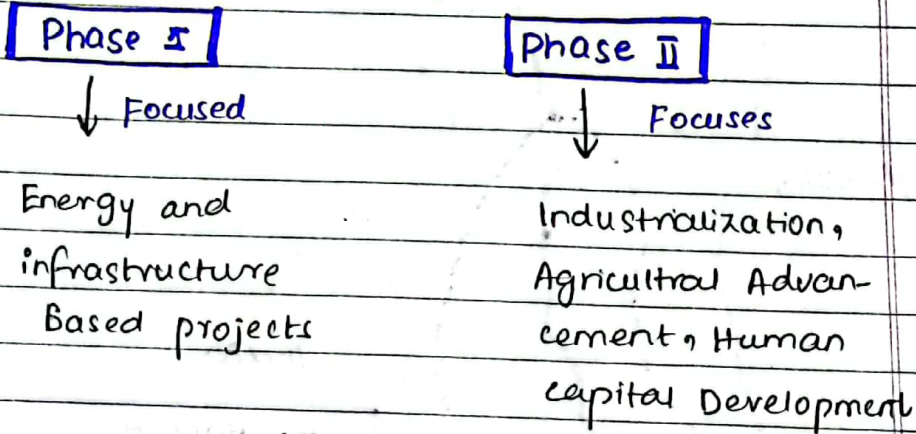 Phase I
Focused
Energy and
infrastructure
Based projects
Phase II
Focuses
Industrialization,
Agricultral Advan-
cement, Human
capital Development